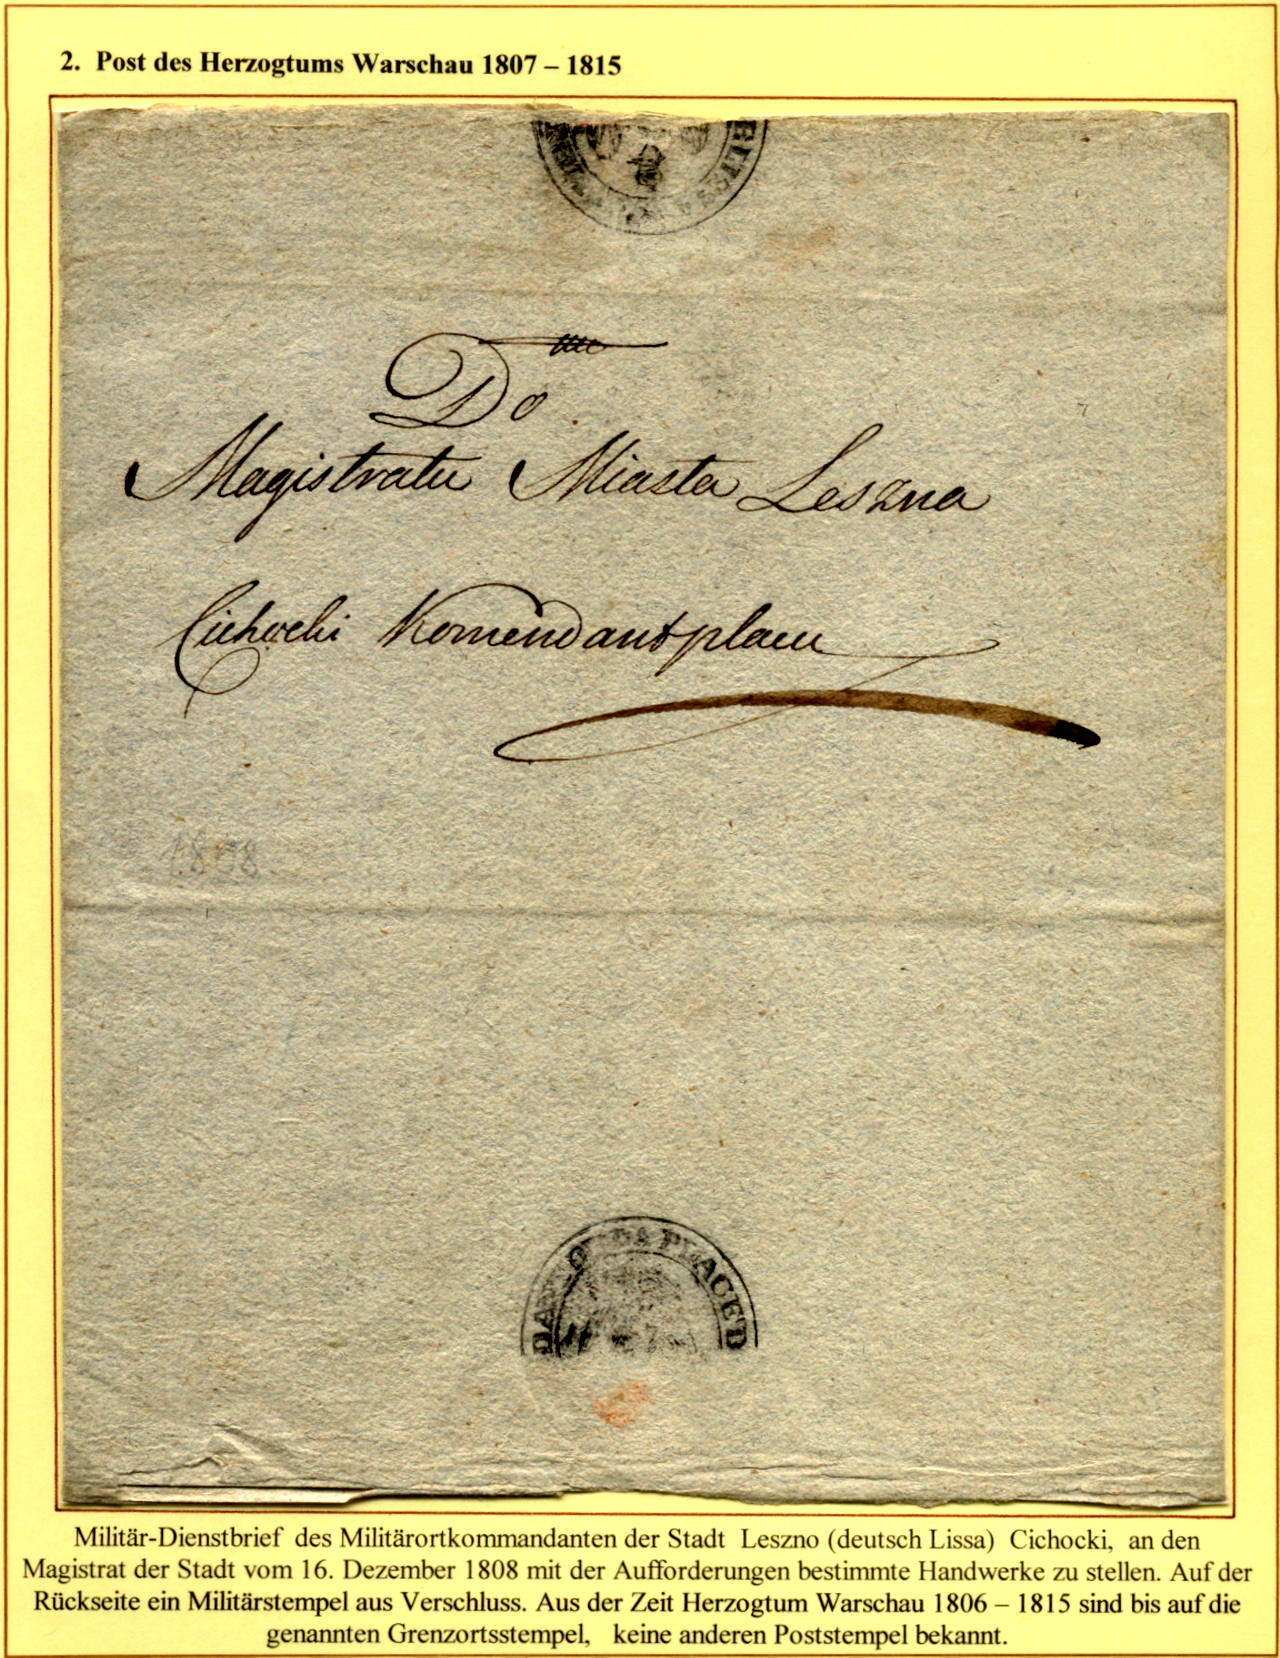 2. Post des Herzogtums Warschau 1807 – 1815
Do
Magistratu Miasta Leszna
Cichocki Komendant placu
1808
PLACE
Militär-Dienstbrief des Militärortkommandanten der Stadt Leszno (deutsch Lissa) Cichocki, an den
Magistrat der Stadt vom 16. Dezember 1808 mit der Aufforderungen bestimmte Handwerke zu stellen. Auf der
Rückseite ein Militärstempel aus Verschluss. Aus der Zeit Herzogtum Warschau 1806 – 1815 sind bis auf die
genannten Grenzortsstempel, keine anderen Poststempel bekannt.